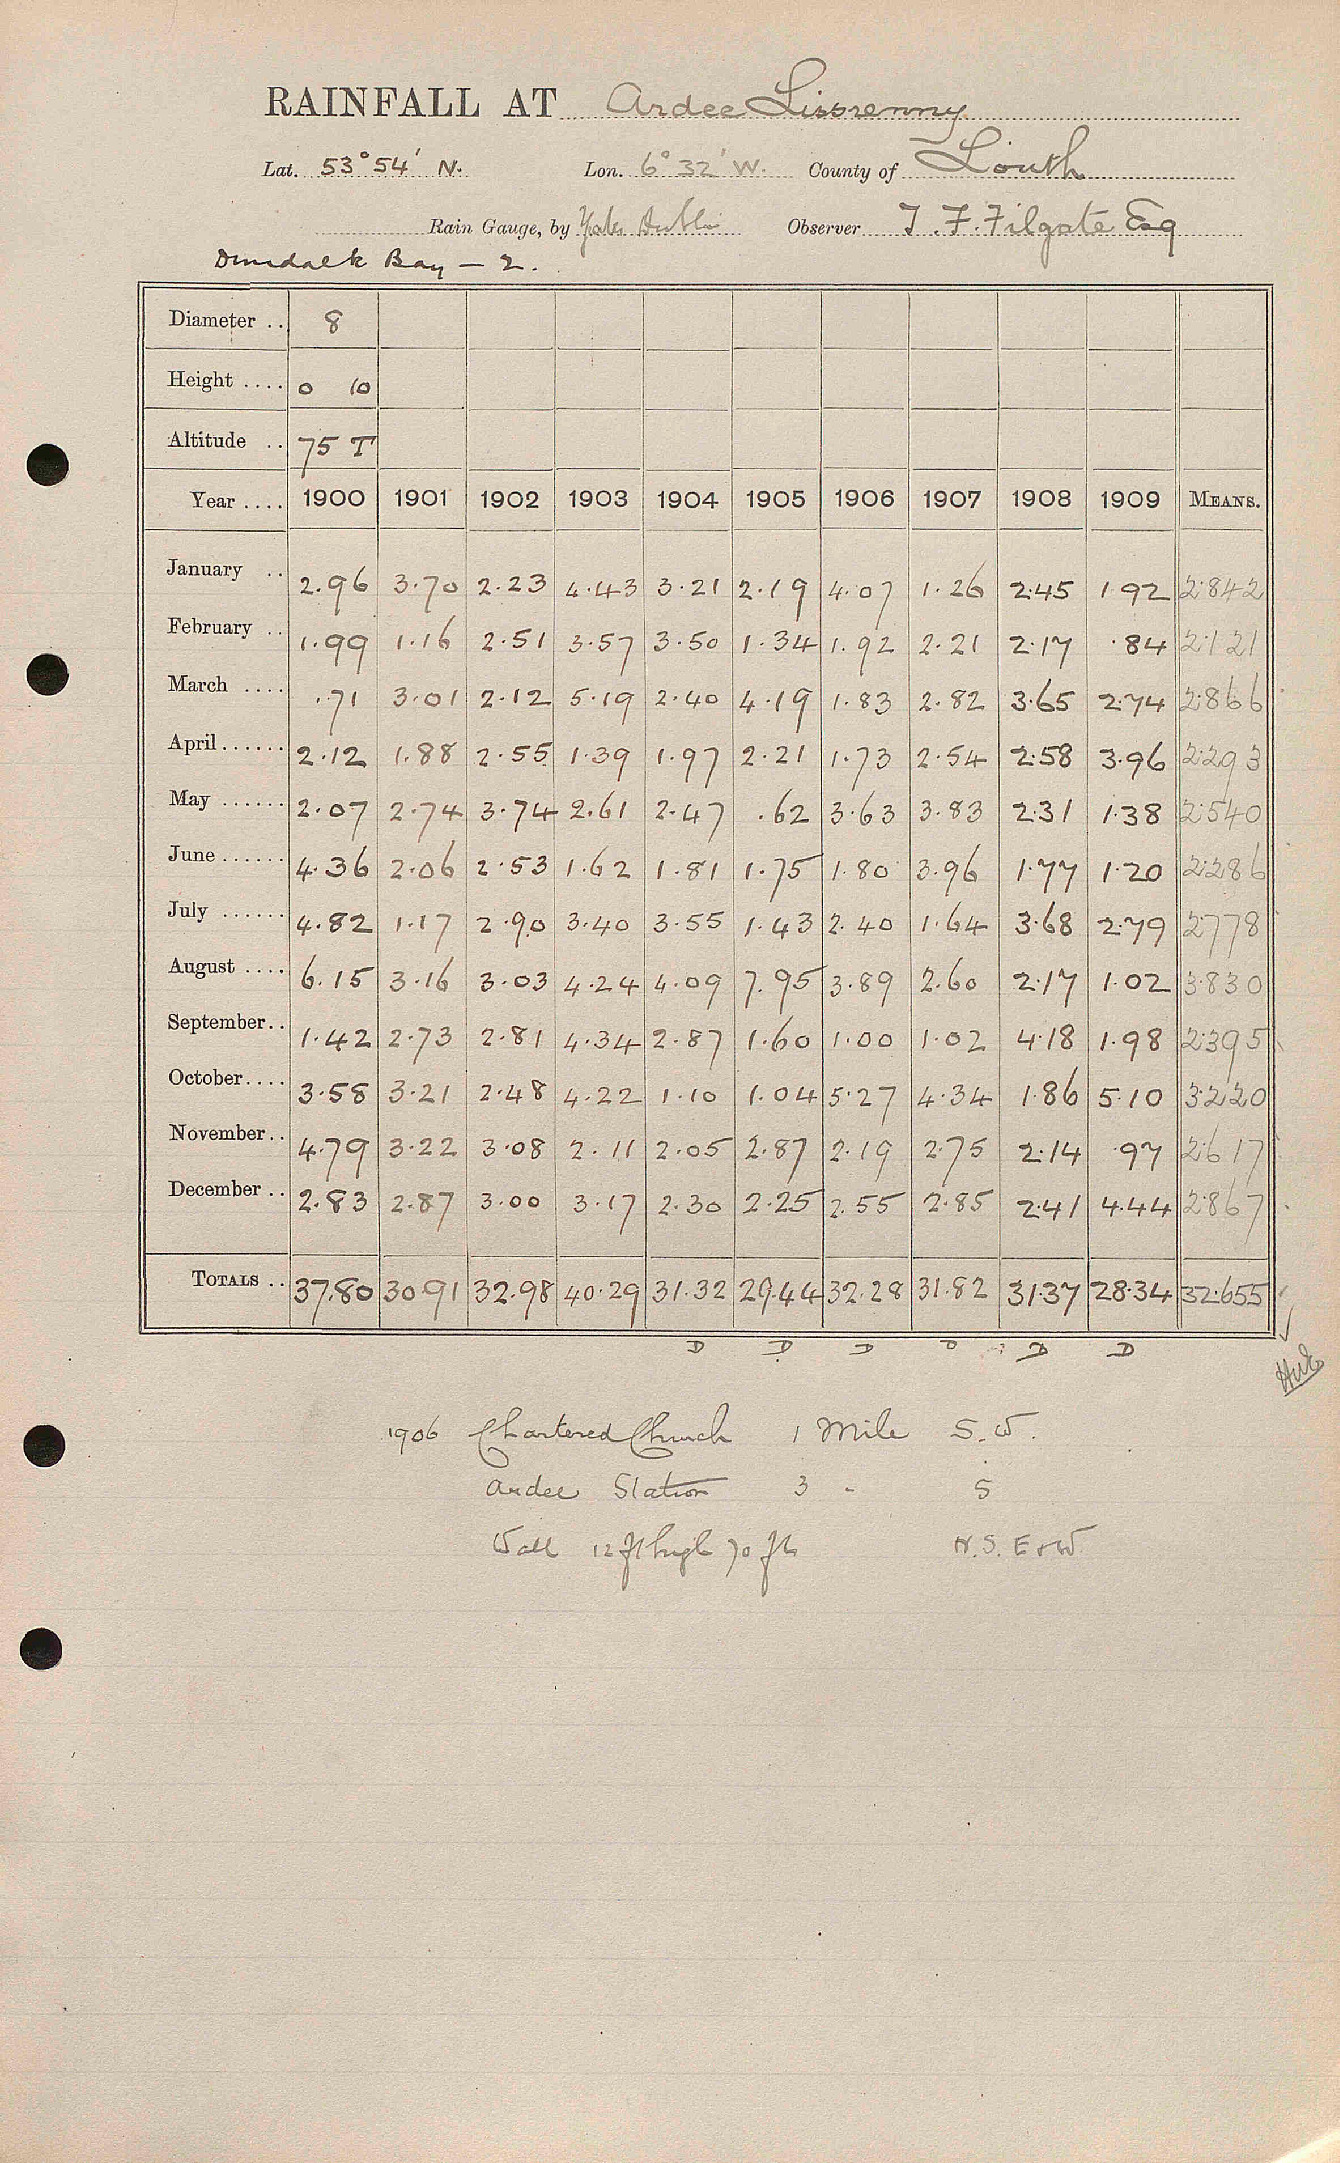 RAINFALL AT Ardee Lissrenny
Lat. 53° 54' N. Lon. 6° 32' W. County of Louth
Rain Gauge, by Yates Dublin Observer T. F. Filgate Esq
Dundalk Bay — 2.
Diameter .. 8
Height .... 0 10
Altitude .. 75 T
Year .... 1900 1901 1902 1903 1904 1905 1906 1907 1908 1909 MEANS.
January .. 2.96 3.70 2.23 4.43 3.21 2.19 4.07 1.26 2.45 1.92 2.842
February .. 1.99 1.16 2.51 3.57 3.50 1.34 1.92 2.21 2.17 .84 2.121
March .... .71 3.01 2.12 5.19 2.40 4.19 1.83 2.82 3.65 2.74 2.866
April ...... 2.12 1.88 2.55 1.39 1.97 2.21 1.73 2.54 2.58 3.96 2.293
May ...... 2.07 2.74 3.74 2.61 2.47 .62 3.63 3.83 2.31 1.38 2.540
June ...... 4.36 2.06 2.53 1.62 1.81 1.75 1.80 3.96 1.77 1.20 2.286
July ...... 4.82 1.17 2.90 3.40 3.55 1.43 2.40 1.64 3.68 2.79 2.778
August .... 6.15 3.16 3.03 4.24 4.09 7.95 3.89 2.60 2.17 1.02 3.830
September .. 1.42 2.73 2.81 4.34 2.87 1.60 1.00 1.02 4.18 1.98 2.395
October .... 3.58 3.21 2.48 4.22 1.10 1.04 5.27 4.34 1.86 5.10 3.220
November .. 4.79 3.22 3.08 2.11 2.05 2.87 2.19 2.75 2.14 .97 2.617
December .. 2.83 2.87 3.00 3.17 2.30 2.25 2.55 2.85 2.41 4.44 2.867
TOTALS .. 37.80 30.91 32.98 40.29 31.32 29.44 32.28 31.82 31.37 28.34 32.655
D D D D D D
1906 Chartered Church 1 Mile S.W.
Ardee Station 3 " S
Wall 12 ft high 70 ft N. S. E & W